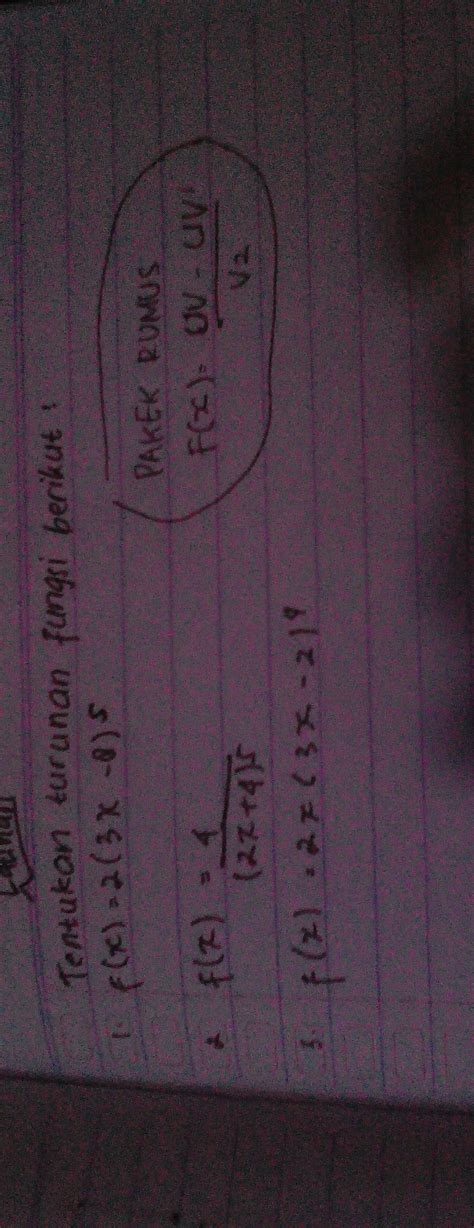 Latihan
Tentukan turunan fungsi berikut :
1. f(x) = 2(3x - 8)⁵
PAKEK RUMUS
F(x) = UV - UV'
V2
2. f(x) = 4
(2x+4)5
3. f(x) = 2x (3x - 2)⁴